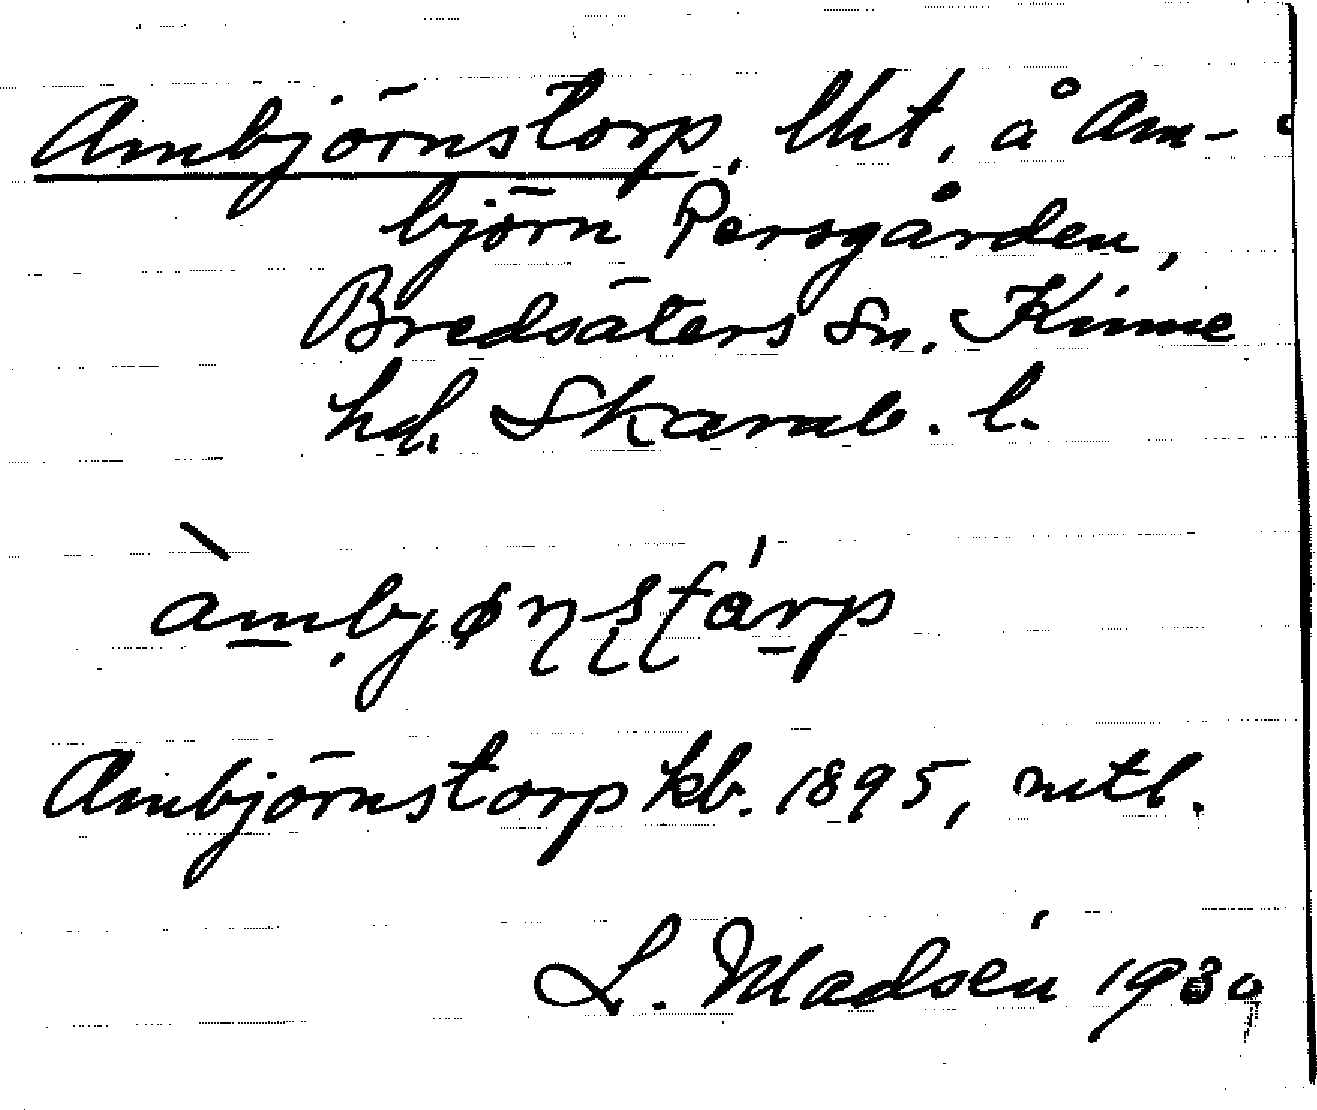 Ambjörnstorp, lht, å Am-
björn Persgården,
Bredsäters sn. Kinne
hd. Skarab. l.
àmbjøṇṣʈárp
Ambjörnstorp kb. 1895, mtl.
L. Madsén 1939